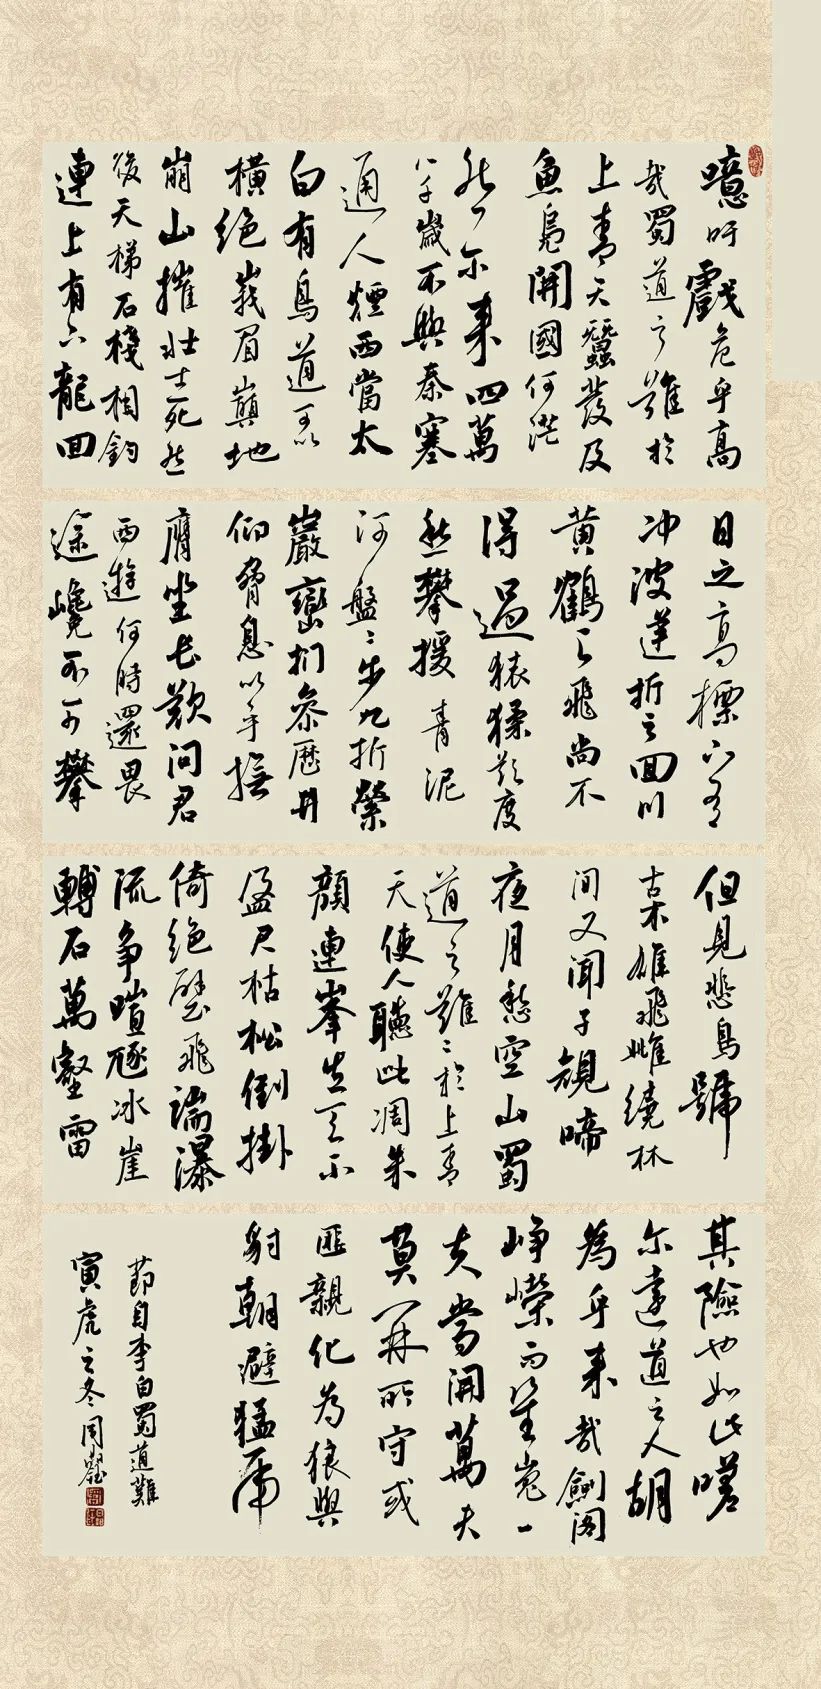 噫吁戲危乎高
哉蜀道之難於
上青天蠶叢及
魚鳧開國何茫
然尔來四萬
八千歲不與秦塞
通人煙西當太
白有鳥道可以
橫绝峩眉巔地
崩山摧壯士死然
後天梯石棧相鉤
連上有六龍回
日之高標下有
冲波逆折之回川
黄鶴之飛尚不
得過猿猱欲度
愁攀援青泥
河盤〻步九折縈
巖巒捫參歷井
仰脅息以手撫
膺坐長歎問君
西遊何時還畏
途巉不可攀
但見悲鳥號
古木雄飛雌繞林
间又聞子規啼
夜月愁空山蜀
道之難〻於上青
天使人聽此凋朱
顏連峯去天不
盈尺枯松倒掛
倚绝壁飛湍瀑
流争喧豗冰崖
轉石萬壑雷
其險也如此嗟
尔遠道之人胡
為乎来哉劍阁
峥嶸而崔嵬一
夫當開萬夫
莫開所守或
匪親化為狼與
豺朝避猛虎
節自李白蜀道難
寅虎之冬周